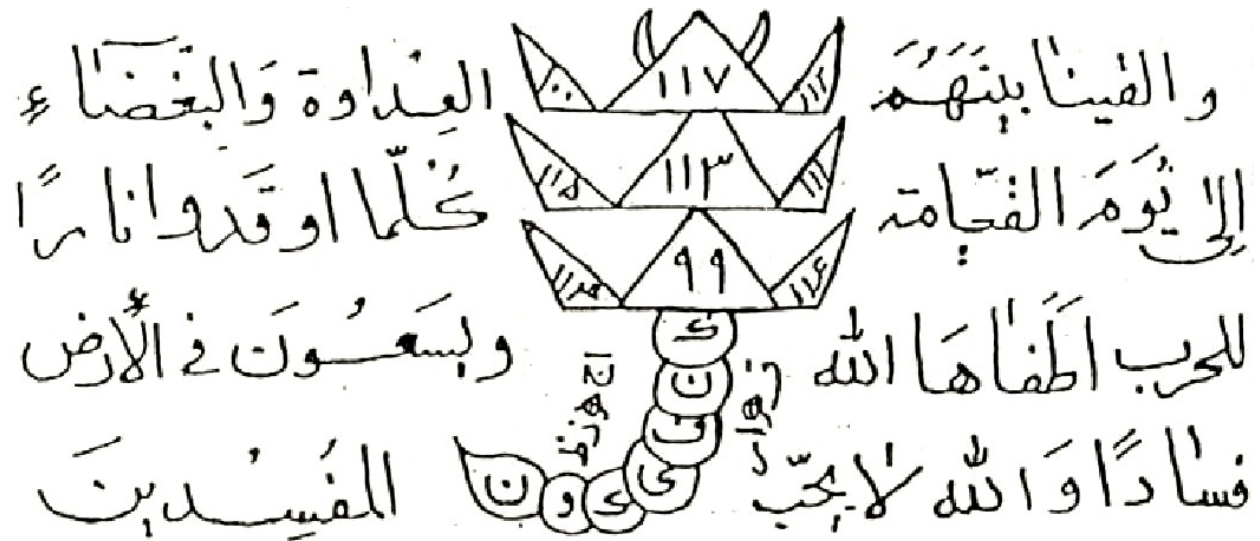 والقينا بينهم العداوة والبغضاء
إلى يوم القيامة كلما اوقدوا نارًا
للحرب اطفاها الله ويسعون في الأرض
فسادًا والله لا يحبّ المفسدين
١١٧
١١٣
٩٩
ك
ن
ف
ي
ك
و
ن